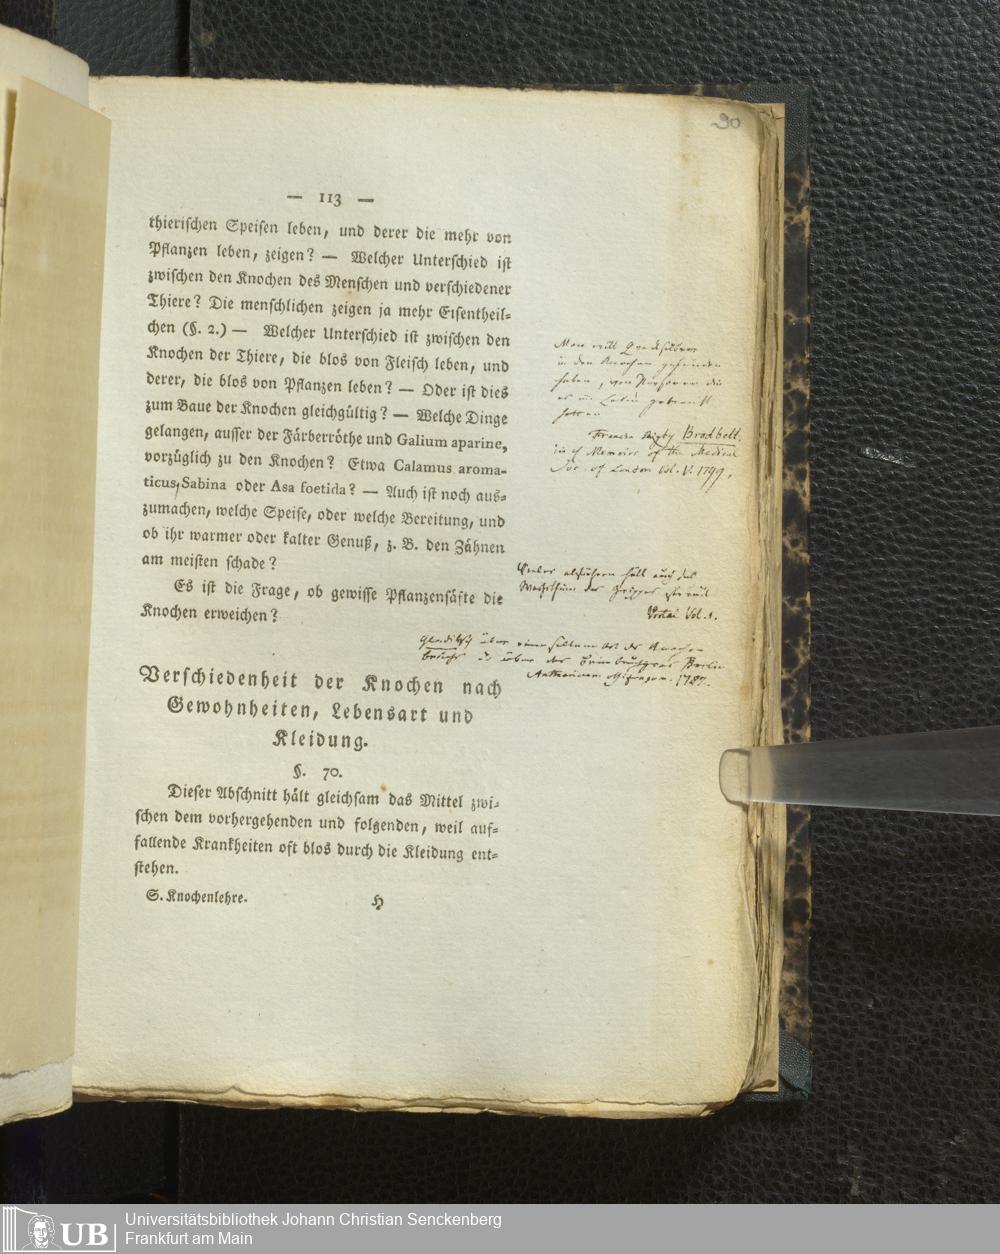 90
— 113 —
thierischen Speisen leben, und derer die mehr von
Pflanzen leben, zeigen? — Welcher Unterschied ist
zwischen den Knochen des Menschen und verschiedener
Thiere? Die menschlichen zeigen ja mehr Eisentheil-
chen (§. 2.) — Welcher Unterschied ist zwischen den
Knochen der Thiere, die blos von Fleisch leben, und
derer, die blos von Pflanzen leben? — Oder ist dies
zum Baue der Knochen gleichgültig? — Welche Dinge
gelangen, ausser der Färberröthe und Galium aparine,
vorzüglich zu den Knochen? Etwa Calamus aroma-
ticus, Sabina oder Asa foetida? — Auch ist noch aus-
zumachen, welche Speise, oder welche Bereitung, und
ob ihr warmer oder kalter Genuß, z. B. den Zähnen
am meisten schade?
Es ist die Frage, ob gewisse Pflanzensäfte die
Knochen erweichen?
Man will Quecksilber
in den Knochen gefunden
haben, von Personen die
es im Leben gebraucht
hatten
Francis Rigby Brodbelt,
in Memoirs of the Medical
Soc. of London Vol. V. 1799.
Portal Vol. 1.
über
Berlin
1787.
Verschiedenheit der Knochen nach
Gewohnheiten, Lebensart und
Kleidung.
§. 70.
Dieser Abschnitt hält gleichsam das Mittel zwi-
schen dem vorhergehenden und folgenden, weil auf-
fallende Krankheiten oft blos durch die Kleidung ent-
stehen.
S. Knochenlehre. H
UB Universitätsbibliothek Johann Christian Senckenberg
Frankfurt am Main